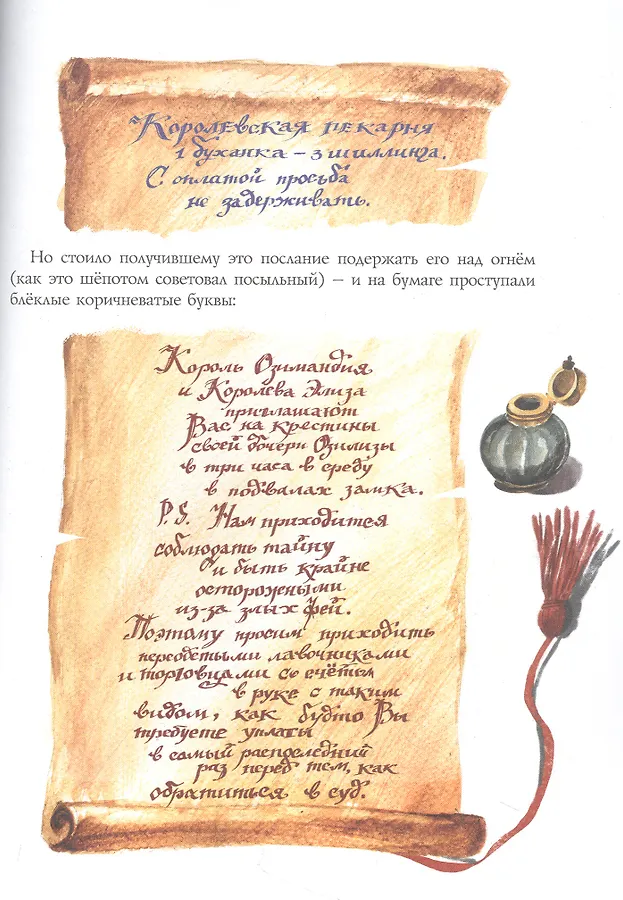 Королевская пекарня
1 буханка – 3 шиллинга.
С оплатой просьба
не задерживать.
Но стоило получившему это послание подержать его над огнём
(как это шёпотом советовал посыльный) – и на бумаге проступали
блёклые коричневатые буквы:
Король Озимандия
и Королева Элиза
приглашают
Вас на крестины
своей дочери Озилизы
в три часа в среду
в подвалах замка.
P.S. Нам приходится
соблюдать тайну
и быть крайне
осторожеными
из-за злых фей.
Поэтому просим приходить
переодетыми лавочниками
и торговцами со счётом
в руке с таким
видом, как будто Вы
требуете уплаты
в самый распоследний
раз перед тем, как
обратиться в суд.